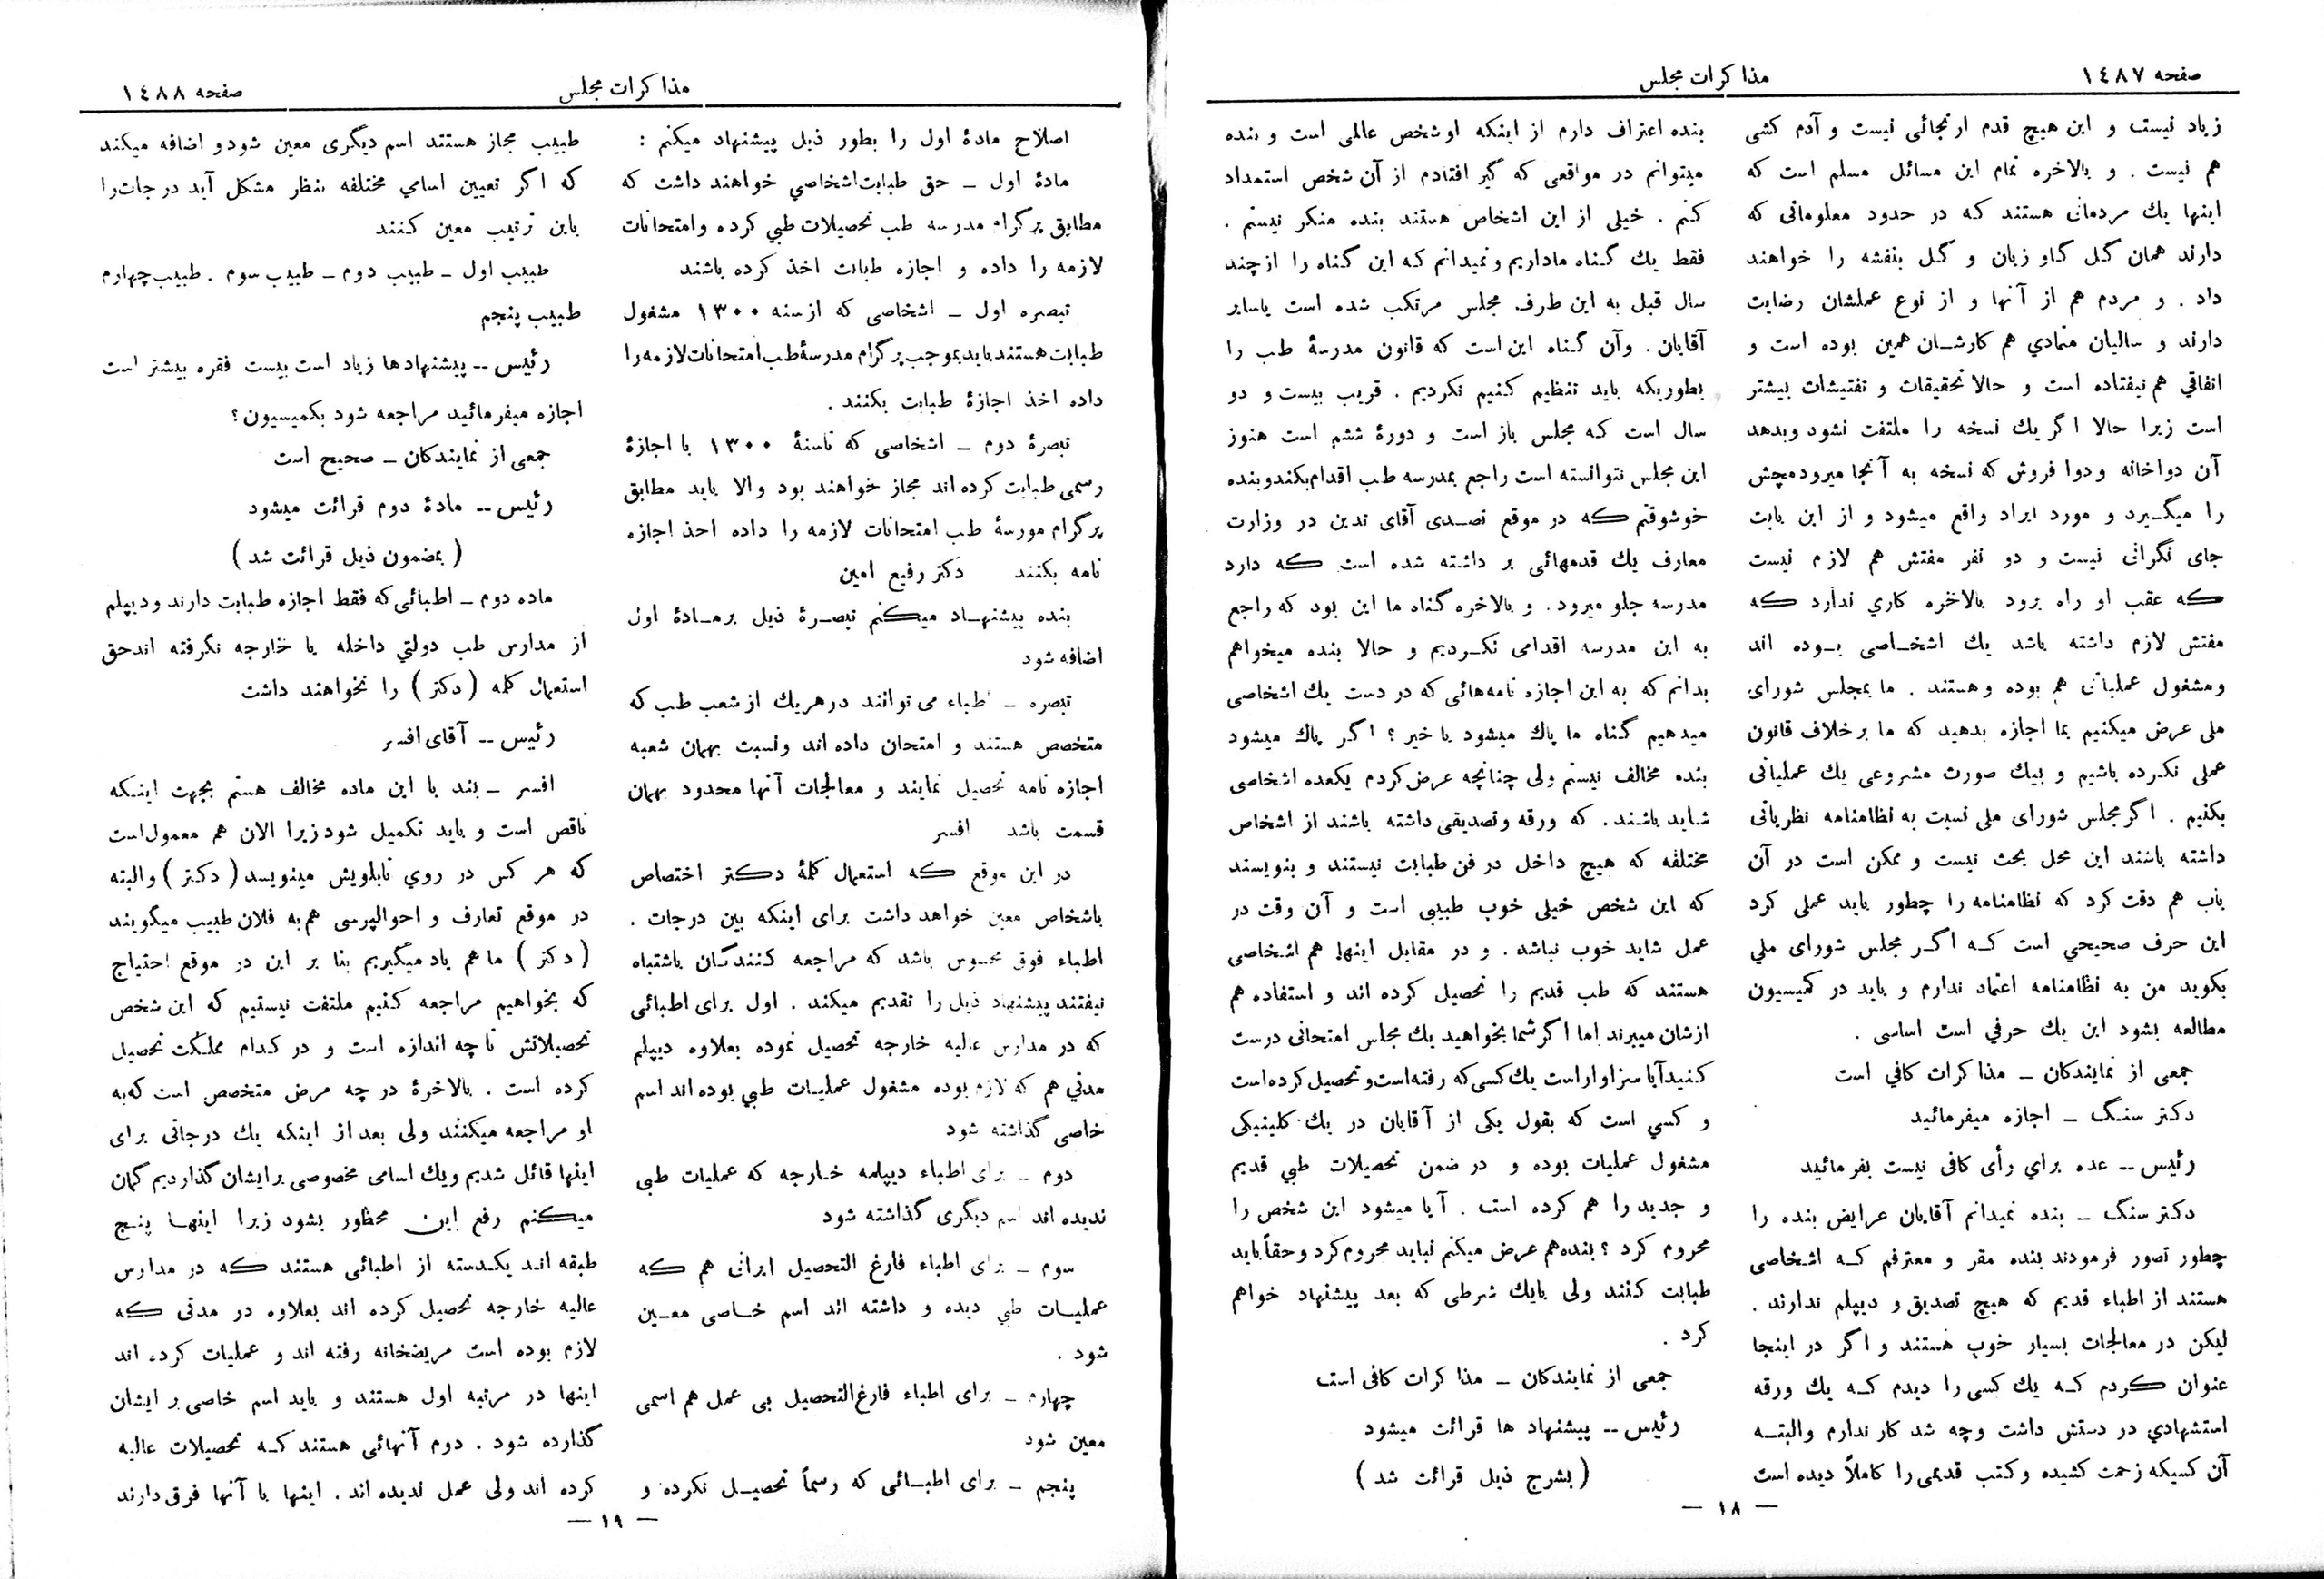 صفحه ۱٤۸۷
مذاکرات مجلس
زیاد نیست و این هیچ قدم ارتجائی نیست و آدم کشی
هم نیست . و بالاخره تمام این مسائل مسلم است که
اینها یك مردمانی هستند که در حدود معلوماتی که
دارند همان گل گاو زبان و گل بنفشه را خواهند
داد . و مردم هم از آنها و از نوع عملشان رضایت
دارند و سالیان متمادي هم کارشان همین بوده است و
اتفاقي هم نیفتاده است و حالا تحقیقات و تفتیشات بیشتر
است زیرا حالا اگر یك نسخه را ملتفت نشود و بدهد
آن دواخانه ودوا فروش که نسخه به آنجا میرود مچش
را میگیرد و مورد ایراد واقع میشود و از این بابت
جای نگرانی نیست و دو نفر مفتش هم لازم نیست
که عقب او راه برود بالاخره کاري ندارد که
مفتش لازم داشته باشد یك اشخاصی بوده اند
ومشغول عملیاتی هم بوده وهستند . ما بمجلس شورای
ملی عرض میکنیم بما اجازه بدهید که ما برخلاف قانون
عملی نکرده باشیم و بیك صورت مشروعی یك عملیاتی
بکنیم . اگر مجلس شورای ملی نسبت به نظامنامه نظریاتی
داشته باشند این محل بحث نیست و ممکن است در آن
باب هم دقت کرد که نظامنامه را چطور باید عملی کرد
این حرف صحیحي است که اگر مجلس شورای ملي
بکوید من به نظامنامه اعتماد ندارم و باید در کمیسیون
مطالعه بشود این یك حرفي است اساسی .
جمعی از نمایندکان ـ مذاکرات کافي است
دکتر سنگ ـ اجازه میفرمائید
رئیس -- عده براي رأی کافی نیست بفرمائید
دکتر سنگ ـ بنده نمیدانم آقایان عرایض بنده را
چطور تصور فرمودند بنده مقر و معترفم که اشخاصی
هستند از اطباء قدیم که هیچ تصدیق و دیپلم ندارند .
لیکن در معالجات بسیار خوب هستند و اگر در اینجا
عنوان کردم که یك کسی را دیدم که یك ورقه
استشهادي در دستش داشت وچه شد کار ندارم والبته
آن کسیکه زحمت کشیده و کتب قدیمی را کاملاً دیده است
بنده اعتراف دارم از اینکه او شخص عالمی است و بنده
میتوانم در مواقعی که گیر افتادم از آن شخص استمداد
کنم . خیلی از این اشخاص هستند بنده منکر نیستم .
فقط یك گناه ماداریم و نمیدانم که این گناه را از چند
سال قبل به این طرف مجلس مرتکب شده است یاسایر
آقایان . وآن گناه این است که قانون مدرسهٔ طب را
بطوریکه باید تنظیم کنیم نکردیم . قریب بیست و دو
سال است که مجلس باز است و دورهٔ ششم است هنوز
این مجلس نتوانسته است راجع بمدرسه طب اقدام بکند و بنده
خوشوقتم که در موقع تصدی آقای تدین در وزارت
معارف یك قدمهائی بر داشته شده است که دارد
مدرسه جلو میرود . و بالاخره گناه ما این بود که راجع
به این مدرسه اقدامی نکردیم و حالا بنده میخواهم
بدانم که به این اجازه نامه‌هائی که در دست یك اشخاصی
میدهیم گناه ما پاك میشود یا خیر ؟ اگر پاك میشود
بنده مخالف نیستم ولی چنانچه عرض کردم یکعده اشخاصی
شاید باشند . که ورقه وتصدیقی داشته باشند از اشخاص
مختلفه که هیچ داخل در فن طبابت نیستند و بنویسند
که این شخص خیلی خوب طبیبی است و آن وقت در
عمل شاید خوب نباشد . و در مقابل اینها هم اشخاصی
هستند که طب قدیم را تحصیل کرده اند و استفاده هم
ازشان میبرند اما اگر شما بخواهید یك مجلس امتحانی درست
کنید آیا سزاوار است یك کسی که رفته است و تحصیل کرده است
و کسي است که بقول یکی از آقایان در یك کلینیکی
مشغول عملیات بوده و در ضمن تحصیلات طبي قدیم
و جدید را هم کرده است . آیا میشود این شخص را
محروم کرد ؟ بنده هم عرض میکنم نباید محروم کرد و حقاً باید
طبابت کنند ولی بایك شرطی که بعد پیشنهاد خواهم
کرد .
جمعی از نمایندکان ـ مذاکرات کافی است
رئیس -- پیشنهاد ها قرائت میشود
( بشرح ذیل قرائت شد )
— ۱۸ —
مذاکرات مجلس
صفحه ۱٤۸۸
اصلاح مادهٔ اول را بطور ذیل پیشنهاد میکنم :
مادهٔ اول ـ حق طبابت اشخاصي خواهند داشت که
مطابق پرگرام مدرسه طب تحصیلات طبي کرده و امتحانات
لازمه را داده و اجازه طبابت اخذ کرده باشند
تبصره اول ـ اشخاصی که از سنه ۱۳۰۰ مشغول
طبابت هستند باید بموجب پرگرام مدرسهٔ طب امتحانات لازمه را
داده اخذ اجازهٔ طبابت بکنند .
تبصرهٔ دوم ـ اشخاصی که تاسنهٔ ۱۳۰۰ با اجازهٔ
رسمی طبابت کرده اند مجاز خواهند بود والا باید مطابق
پرگرام مورسهٔ طب امتحانات لازمه را داده احذ اجازه
نامه بکنند دکتر رفیع امین
بنده پیشنهاد میکنم تبصرهٔ ذیل برمادهٔ اول
اضافه شود
تبصره ـ اطباء می توانند در هریك از شعب طب که
متخصص هستند و امتحان داده اند ونسبت بهمان شعبه
اجازه نامه تحصیل نمایند و معالجات آنها محدود بهمان
قسمت باشد افسر
در این موقع که استعمال کلمهٔ دکتر اختصاص
باشخاص معین خواهد داشت برای اینکه بین درجات .
اطباء فوق محسوس باشد که مراجعه کنندگان باشتباه
نیفتند پیشنهاد ذیل را تقدیم میکند . اول برای اطبائی
که در مدارس عالیه خارجه تحصیل نموده بعلاوه دیپلم
مدتي هم که لازم بوده مشغول عملیات طبي بوده اند اسم
خاصی گذاشته شود
دوم ـ برای اطباء دیپلمه خارجه که عملیات طبی
ندیده اند اسم دیگری گذاشته شود
سوم ـ برای اطباء فارغ التحصیل ایرانی هم که
عملیات طي دیده و داشته اند اسم خاصی معین
شود .
چهارم ـ برای اطباء فارغ‌التحصیل بی عمل هم اسمی
معین شود
پنجم ـ برای اطبائی که رسماً تحصیل نکرده و
طبیب مجاز هستند اسم دیگری معین شود و اضافه میکند
که اگر تعیین اسامي مختلفه بنظر مشکل آید درجات را
باین ترتیب معین کنند
طبیب اول ـ طبیب دوم ـ طبیب سوم . طبیب چهارم
طبیب پنجم
رئیس -- پیشنهادها زیاد است بیست فقره بیشتر است
اجازه میفرمائید مراجعه شود بکمیسیون ؟
جمعی از نمایندکان ـ صحیح است
رئیس -- مادهٔ دوم قرائت میشود
( بمضمون ذیل قرائت شد )
ماده دوم ـ اطبائی که فقط اجازه طبابت دارند ودیپلم
از مدارس طب دولتي داخله یا خارجه نگرفته اندحق
استعمال کلمه ( دکتر ) را نخواهند داشت
رئیس -- آقای افسر
افسر ـ بند با این ماده مخالف هستم بجهت اینکه
ناقص است و باید تکمیل شود زیرا الان هم معمول است
که هر کس در روي تابلویش مینویسد ( دکتر ) والبته
در موقع تعارف و احوالپرسی هم به فلان طبیب میگویند
( دکتر ) ما هم یاد میگیریم بنا بر این در موقع احتیاج
که بخواهیم مراجعه کنیم ملتفت نیستیم که این شخص
تحصیلاتش تا چه اندازه است و در کدام مملکت تحصیل
کرده است . بالاخرهٔ در چه مرض متخصص است که‌به
او مراجعه میکنند ولی بعد از اینکه یك درجاتی برای
اینها قائل شدیم ویك اسامی مخصوصی برایشان گذاردیم گمان
میکنم رفع این محظور بشود زیرا اینها پنج
طبقه اند یکدسته از اطبائی هستند که در مدارس
عالیه خارجه تحصیل کرده اند بعلاوه در مدتی که
لازم بوده است مریضخانه رفته اند و عملیات کرده اند
اینها در مرتبه اول هستند و باید اسم خاصی برایشان
گذارده شود . دوم آنهائی هستند که تحصیلات عالیه
کرده اند ولی عمل ندیده اند . اینها با آنها فرق دارند
— ۱۹ —